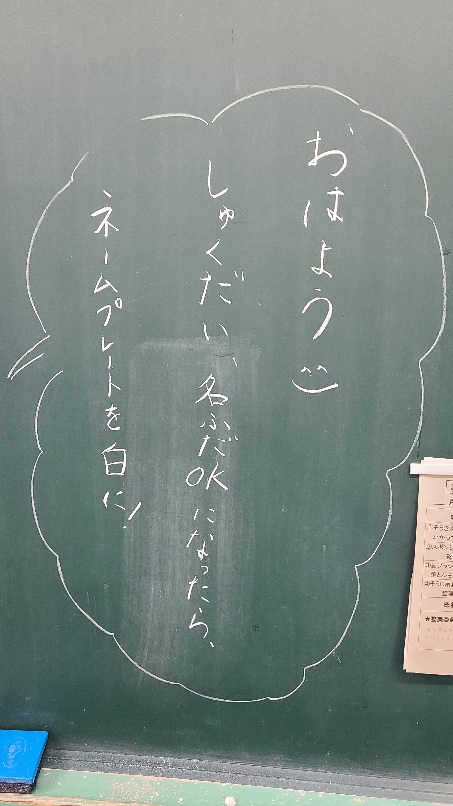 おはよう ^^
しゅくだい、名ふだOKになったら、
ネームプレートを白に!